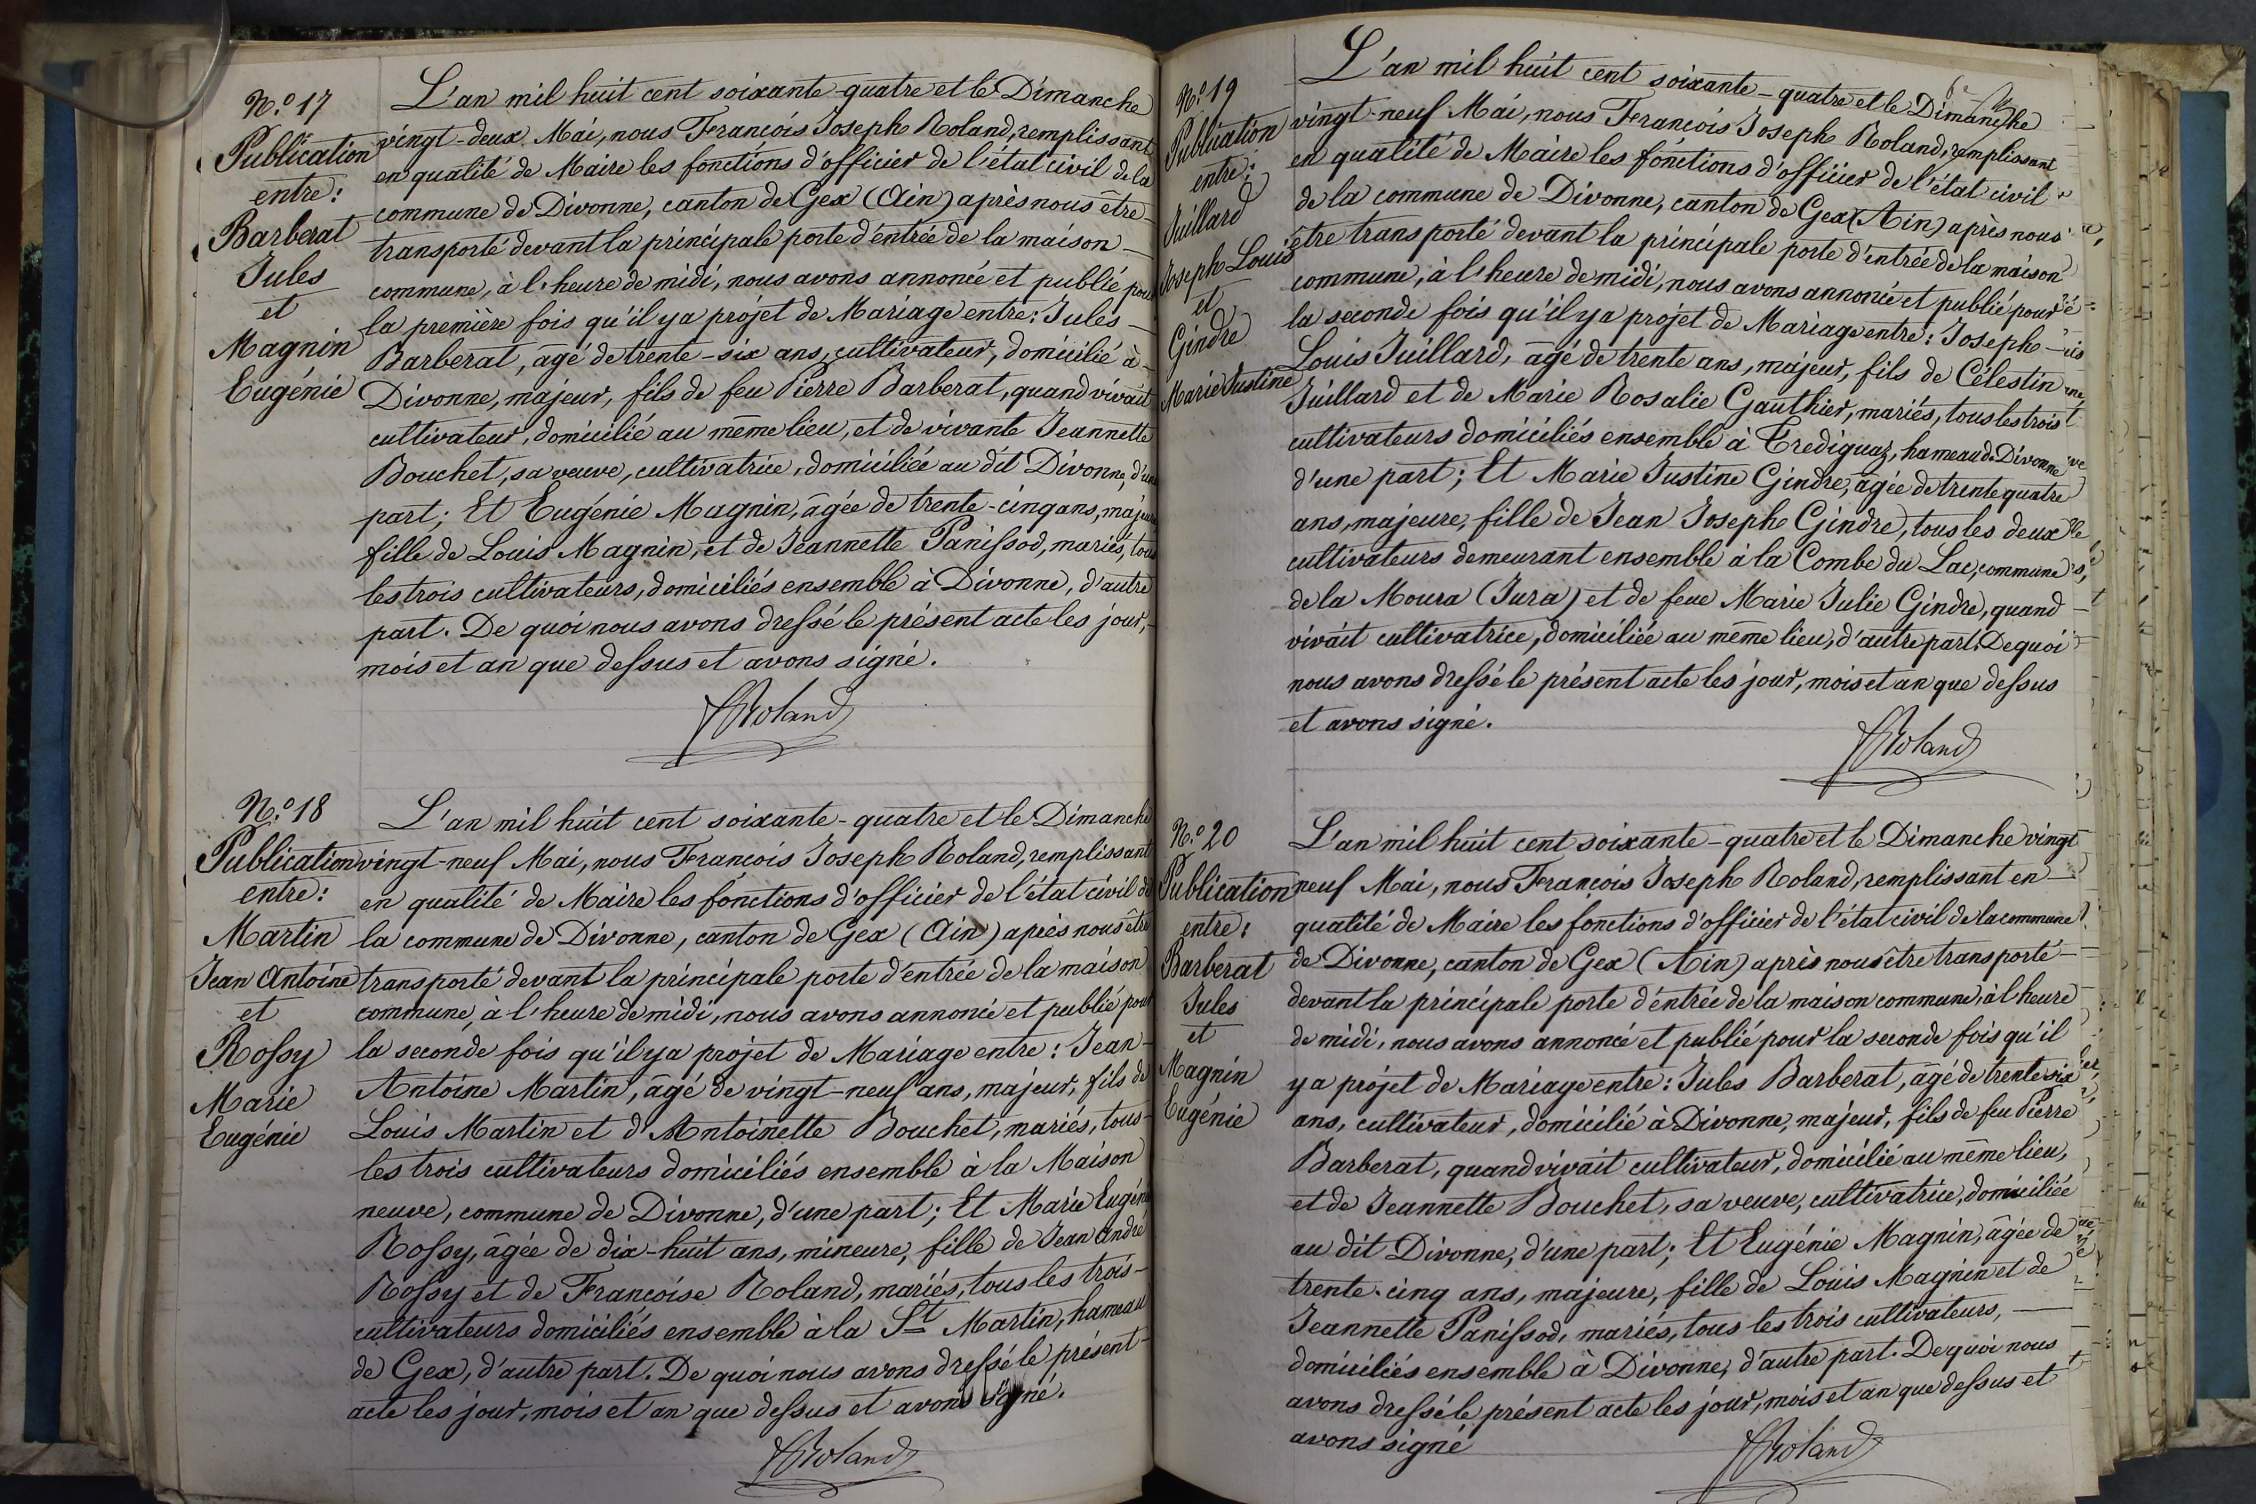 N.º 17
Publication
entre:
Barberat
Jules
et
Magnin
Eugénie
L'an mil huit cent soixante-quatre et le Dimanche
vingt-deux Mai, nous François Joseph Roland, remplissant
en qualité de Maire les fonctions d'officier de l'état civil de la
commune de Divonne, canton de Gex (Ain) après nous être
transporté devant la principale porte d'entrée de la maison
commune, à l'heure de midi, nous avons annoncé et publié pour
la première fois qu'il y a projet de Mariage entre: Jules
Barberat, âgé de trente-six ans, cultivateur, domicilié à
Divonne, majeur, fils de feu Pierre Barberat, quand vivait
cultivateur, domicilié au même lieu, et de vivante Jeannette
Bouchet, sa veuve, cultivatrice, domiciliée au dit Divonne, d'une
part; Et Eugénie Magnin, âgée de trente-cinq ans, majeure
fille de Louis Magnin, et de Jeannette Panissod, mariés, tous
les trois cultivateurs, domiciliés ensemble à Divonne, d'autre
part. De quoi nous avons dressé le présent acte les jour,
mois et an que dessus et avons signé.
FRoland
N.º 18
Publication
entre:
Martin
Jean Antoine
et
Rossy
Marie
Eugénie
L'an mil huit cent soixante-quatre et le Dimanche
vingt-neuf Mai, nous François Joseph Roland, remplissant
en qualité de Maire les fonctions d'officier de l'état civil de
la commune de Divonne, canton de Gex (Ain) après nous être
transporté devant la principale porte d'entrée de la maison
commune, à l'heure de midi, nous avons annoncé et publié pour
la seconde fois qu'il y a projet de Mariage entre: Jean
Antoine Martin, âgé de vingt-neuf ans, majeur, fils de
Louis Martin et d'Antoinette Bouchet, mariés, tous
les trois cultivateurs domiciliés ensemble à la Maison
neuve, commune de Divonne, d'une part; Et Marie Eugénie
Rossy, âgée de dix-huit ans, mineure, fille de Jean André
Rossy et de Françoise Roland, mariés, tous les trois
cultivateurs domiciliés ensemble à la St Martin, hameau
de Gex, d'autre part. De quoi nous avons dressé le présent
acte les jour, mois et an que dessus et avons signé.
FRoland
N.º 19
Publication
entre:
Juillard
Joseph Louis
et
Gindre
Marie Justine
L'an mil huit cent soixante-quatre et le Dimanche
vingt-neuf Mai, nous François Joseph Roland, remplissant
en qualité de Maire les fonctions d'officier de l'état civil
de la commune de Divonne, canton de Gex (Ain) après nous
être transporté devant la principale porte d'entrée de la maison
commune, à l'heure de midi, nous avons annoncé et publié pour
la seconde fois qu'il y a projet de Mariage entre: Joseph
Louis Juillard, âgé de trente ans, majeur, fils de Célestin
Juillard et de Marie Rosalie Gauthier, mariés, tous les trois
cultivateurs domiciliés ensemble à Trediguaz, hameau de Divonne
d'une part; Et Marie Justine Gindre, âgée de trente quatre
ans, majeure, fille de Jean Joseph Gindre, tous les deux
cultivateurs demeurant ensemble à la Combe du Lac, commune
de la Moura (Jura) et de feue Marie Julie Gindre, quand
vivait cultivatrice, domiciliée au même lieu, d'autre part. De quoi
nous avons dressé le présent acte les jour, mois et an que dessus
et avons signé.
FRoland
N.º 20
Publication
entre:
Barberat
Jules
et
Magnin
Eugénie
L'an mil huit cent soixante-quatre et le Dimanche vingt
neuf Mai, nous François Joseph Roland, remplissant en
qualité de Maire les fonctions d'officier de l'état civil de la commune
de Divonne, canton de Gex (Ain) après nous être transporté
devant la principale porte d'entrée de la maison commune, à l'heure
de midi, nous avons annoncé et publié pour la seconde fois qu'il
y a projet de Mariage entre: Jules Barberat, âgé de trente six
ans, cultivateur, domicilié à Divonne, majeur, fils de feu Pierre
Barberat, quand vivait cultivateur, domicilié au même lieu,
et de Jeannette Bouchet, sa veuve, cultivatrice, domiciliée
au dit Divonne, d'une part; Et Eugénie Magnin, âgée de
trente-cinq ans, majeure, fille de Louis Magnin et de
Jeannette Panissod, mariés, tous les trois cultivateurs,
domiciliés ensemble à Divonne, d'autre part. De quoi nous
avons dressé le présent acte les jour, mois et an que dessus et
avons signé
FRoland